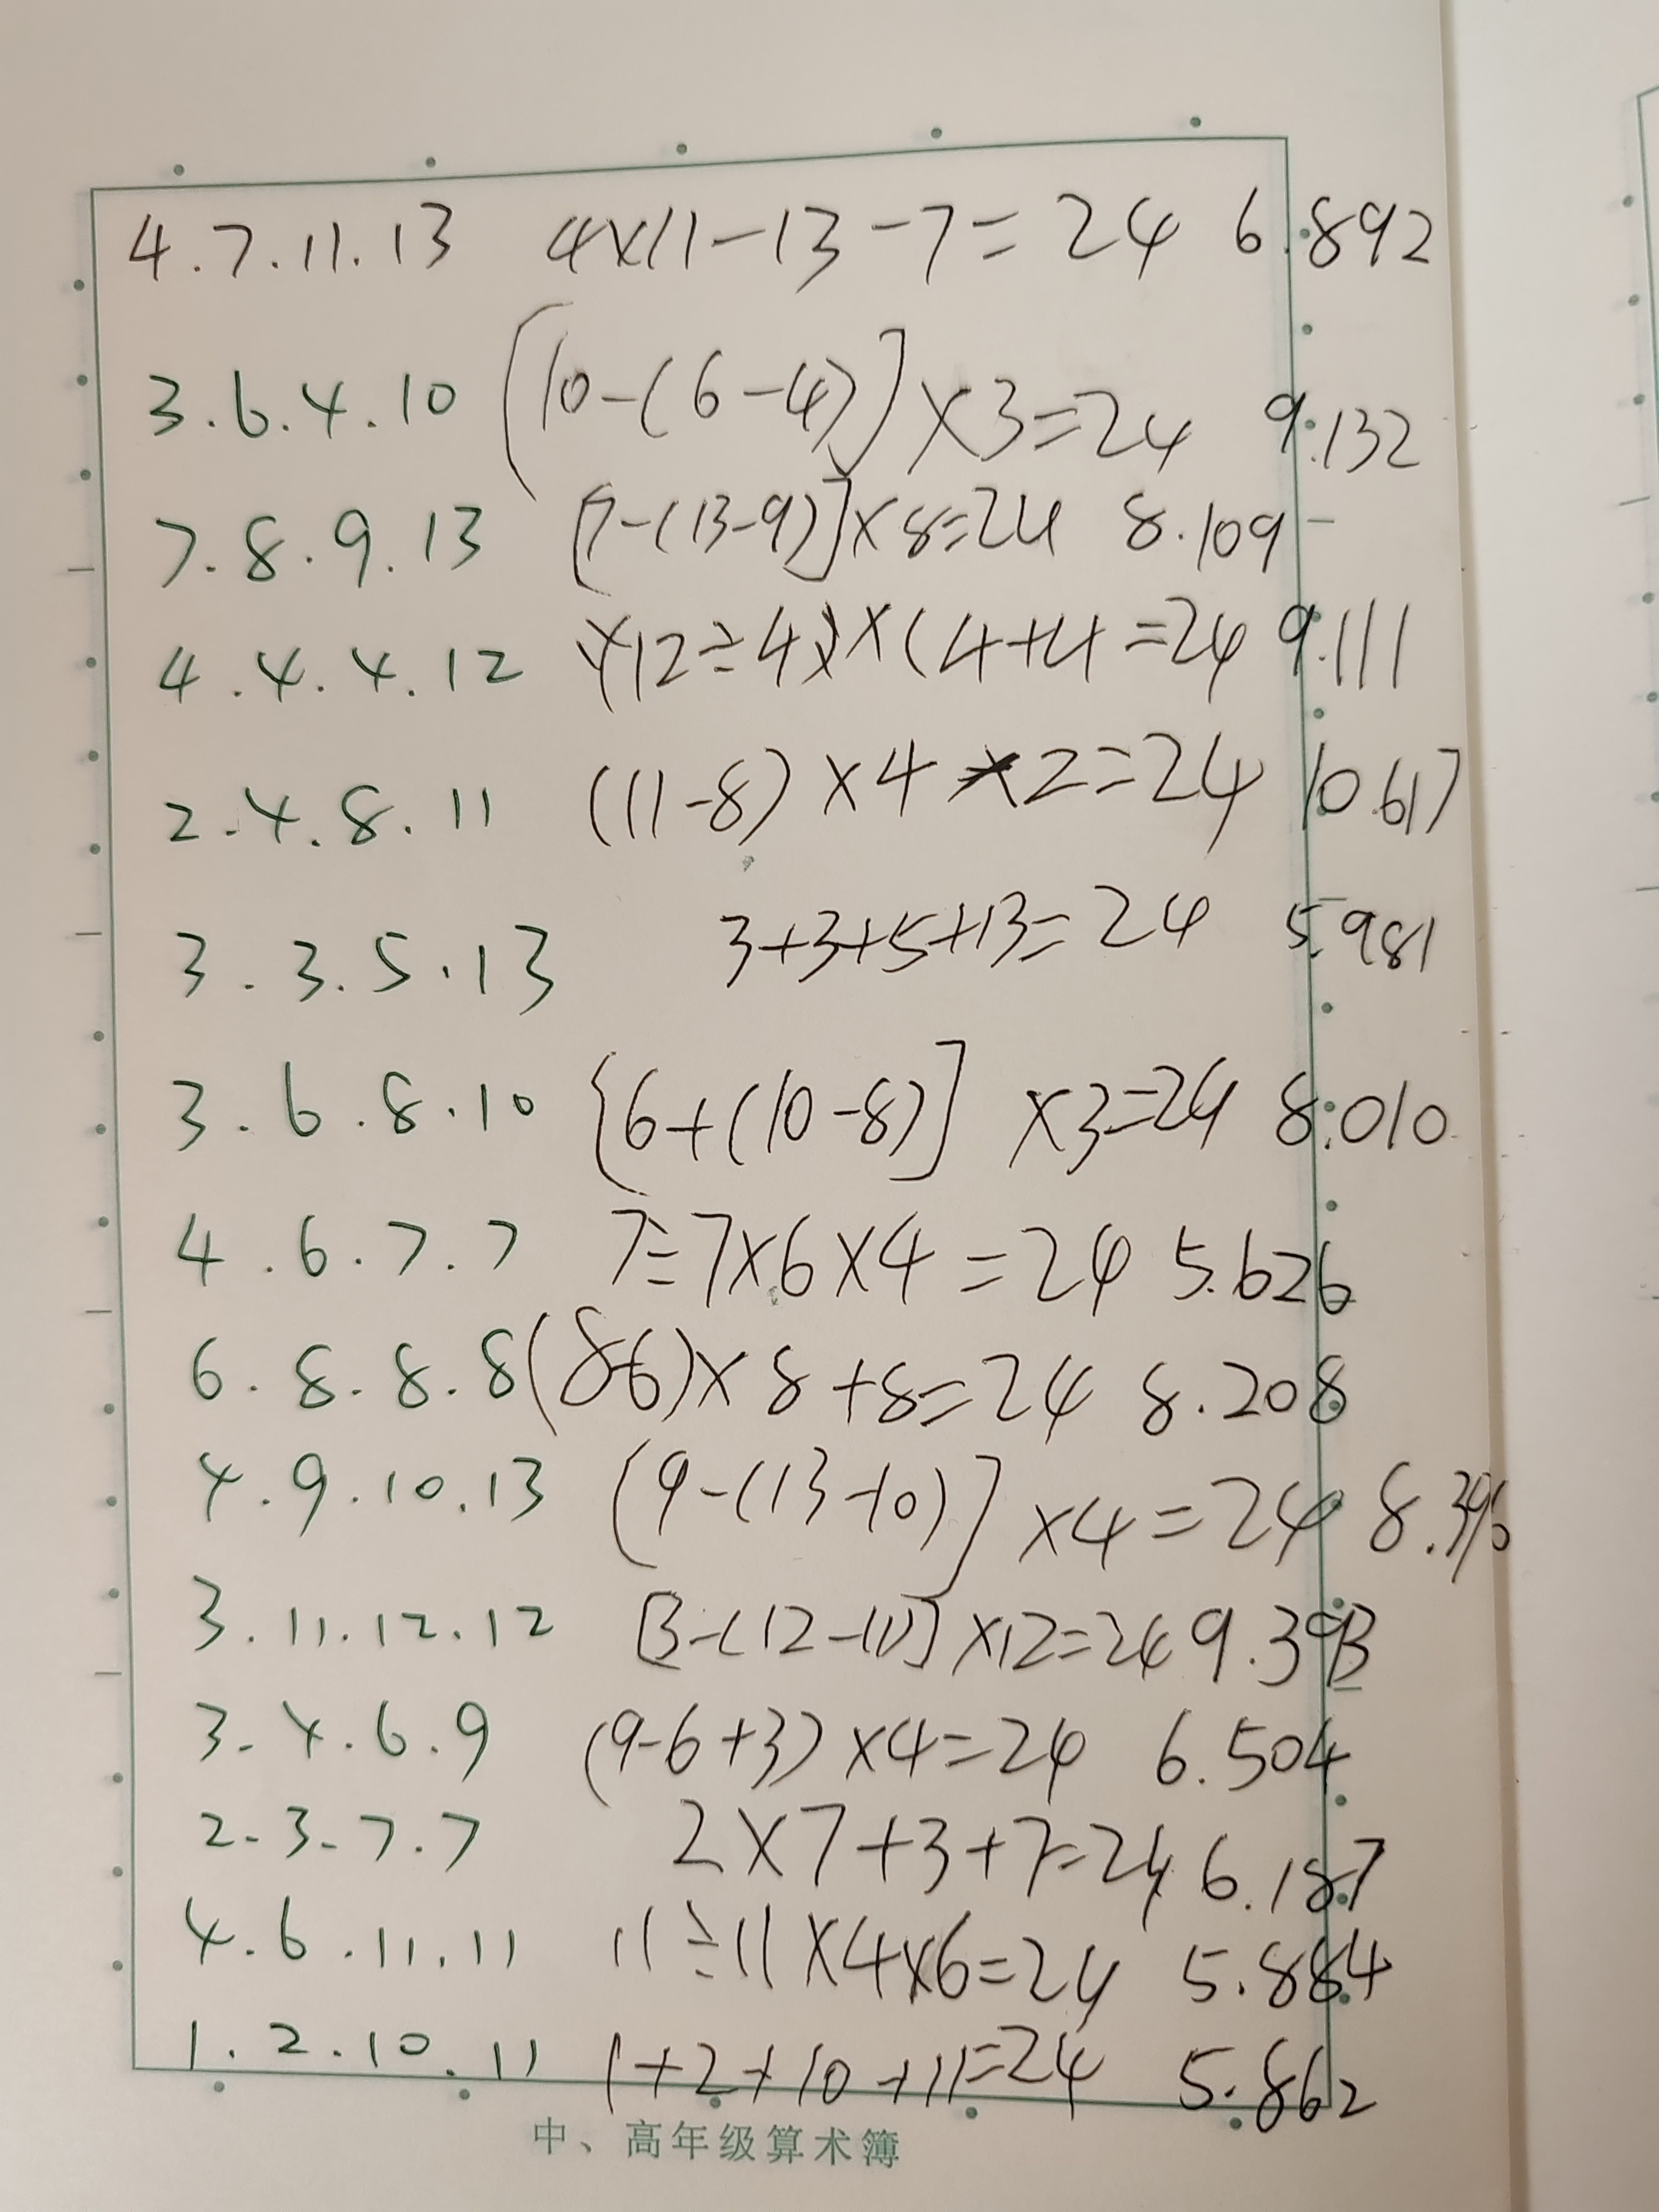 4.7.11.13 4×11-13-7=24 6.892
3.6.4.10 [10-(6-4)]×3=24 9.132
7.8.9.13 [7-(13-9)]×8=24 8.109
4.4.4.12 (12÷4)×(4+4=24 9.111
2.4.8.11 (11-8)×4×2=24 10.617
3.3.5.13 3+3+5+13=24 5.981
3.6.8.10 [6+(10-8)]×3=24 8.010
4.6.7.7 7÷7×6×4=24 5.626
6.8.8.8 (8-6)×8+8=24 8.208
4.9.10.13 [9-(13-10)]×4=24 8.396
3.11.12.12 [3-(12-11)]×12=24 9.393
3.4.6.9 (9-6+3)×4=24 6.504
2.3.7.7 2×7+3+7=24 6.187
4.6.11.11 11÷11×4×6=24 5.884
1.2.10.11 1+2+10+11=24 5.862
中、高年级算术簿